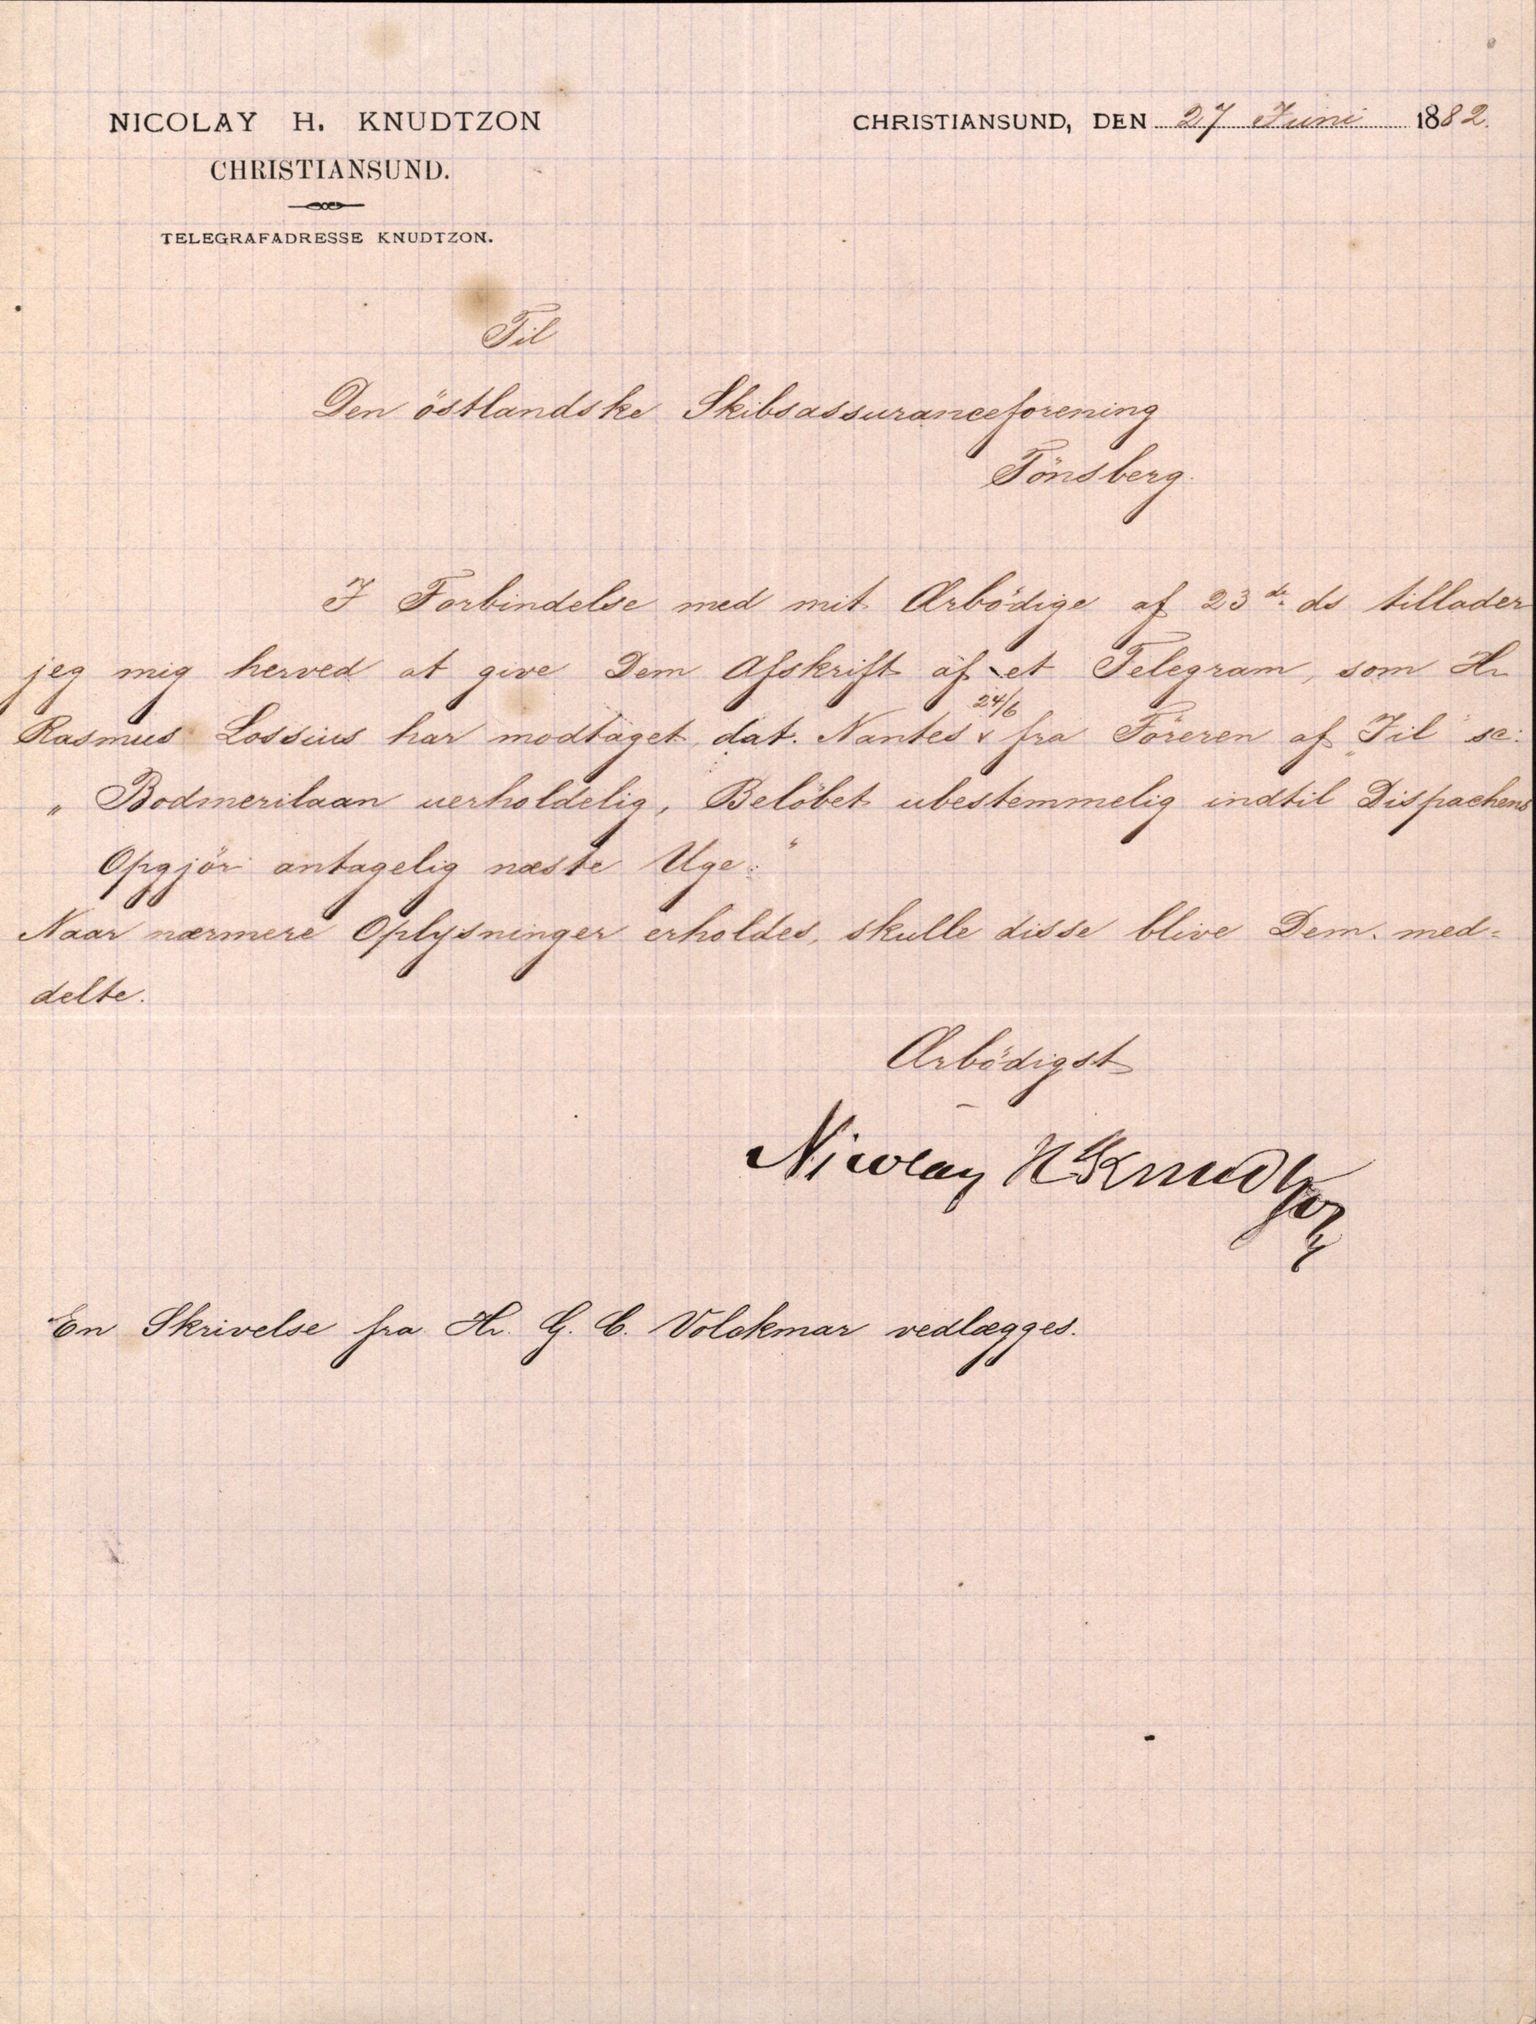 NICOLAY H. KNUDTZON
CHRISTIANSUND.
TELEGRAFADRESSE KNUDTZON.
CHRISTIANSUND, DEN 27 Juni 1882.
Til
Den östlandske Skibsassuranceforening
Tönsberg.
I Forbindelse med mit Ærbödige af 23de ds tillader
jeg mig herved at give Dem Afskrift af et Telegram, som Hr
Rasmus Lossius har modtaget, dat. Nantes 24/6 fra Föreren af "Til" sc:
"Bodmerilaan uerholdelig, Belöbet ubestemmelig indtil Dispachens
Opgjör antagelig næste Uge."
Naar nærmere Oplysninger erholdes, skulle disse blive Dem med=
delte.
Ærbödigst
Nicolay H Knudtzon
En Skrivelse fra Hr. G. C. Volckmar vedlægges.